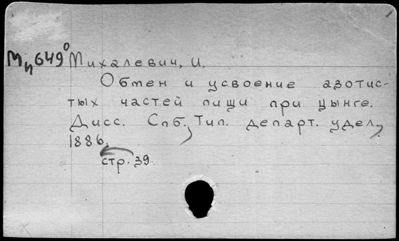 Мп649°
Михалевич, И.
Обмен и усвоение азотис-
тых частей пищи при цынге.
Дисс. Спб, Тип. департ. удел,
1886.
стр. 39.